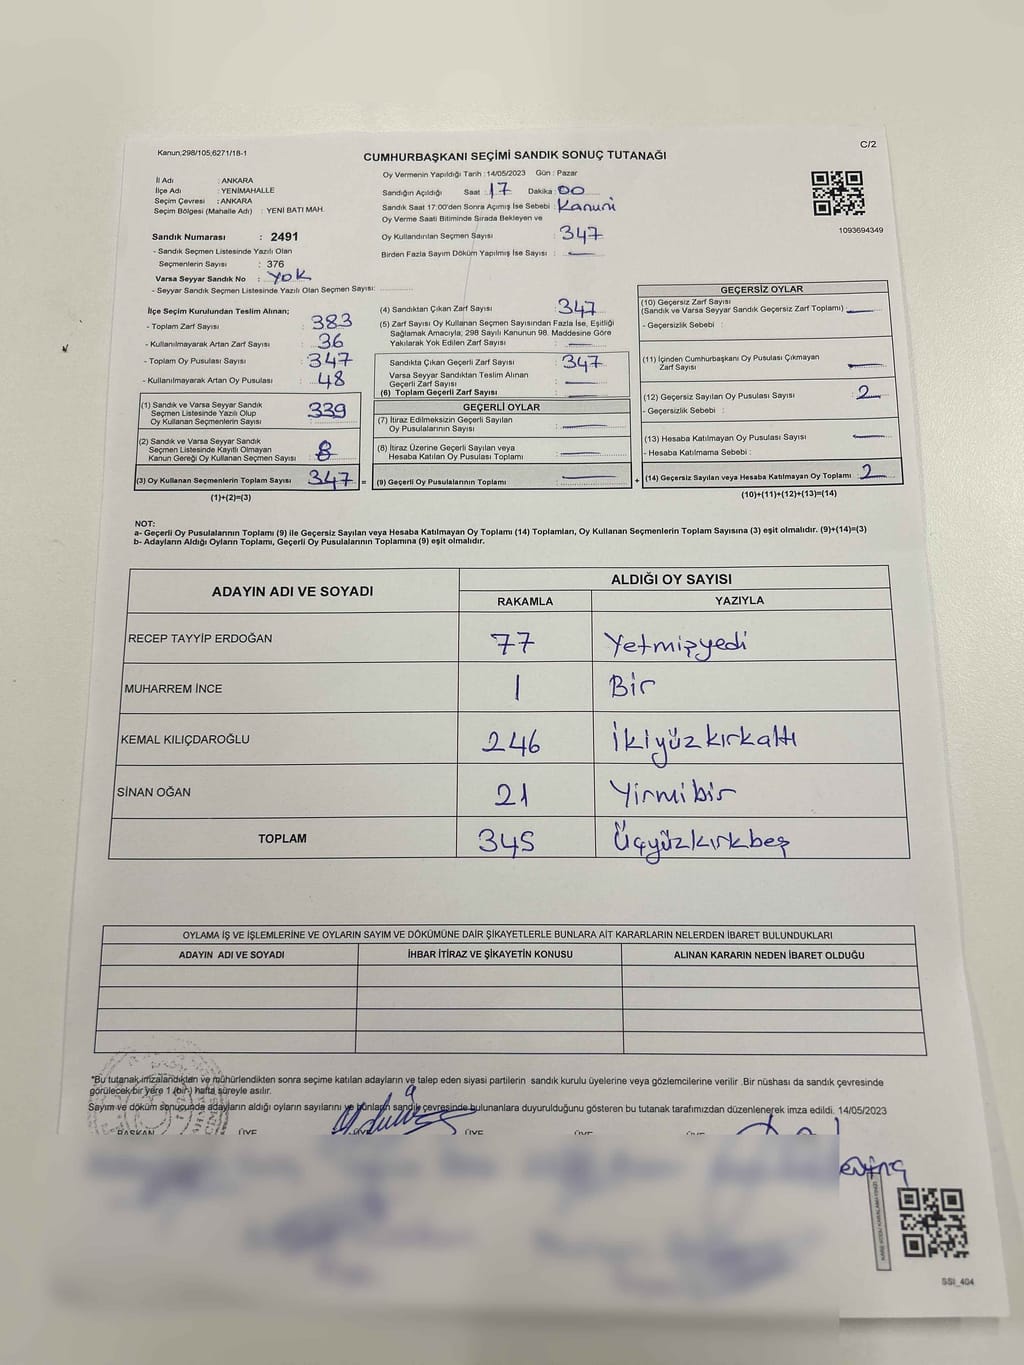 Kanun;298/105;6271/18-1
C/2
CUMHURBAŞKANI SEÇİMİ SANDIK SONUÇ TUTANAĞI
İl Adı : ANKARA
İlçe Adı : YENİMAHALLE
Seçim Çevresi : ANKARA
Seçim Bölgesi (Mahalle Adı) : YENİ BATI MAH.
Sandık Numarası : 2491
- Sandık Seçmen Listesinde Yazılı Olan
Seçmenlerin Sayısı : 376
Varsa Seyyar Sandık No : YOK
- Seyyar Sandık Seçmen Listesinde Yazılı Olan Seçmen Sayısı:
Oy Vermenin Yapıldığı Tarih : 14/05/2023 Gün : Pazar
Sandığın Açıldığı Saat : 17 Dakika : 00
Sandık Saat 17:00'den Sonra Açılmış İse Sebebi : Kanuni
Oy Verme Saati Bitiminde Sırada Bekleyen ve
Oy Kullandırılan Seçmen Sayısı : 347
Birden Fazla Sayım Döküm Yapılmış İse Sayısı : —
1093694349
İlçe Seçim Kurulundan Teslim Alınan;
- Toplam Zarf Sayısı : 383
- Kullanılmayarak Artan Zarf Sayısı : 36
- Toplam Oy Pusulası Sayısı : 347
- Kullanılmayarak Artan Oy Pusulası : 48
(1) Sandık ve Varsa Seyyar Sandık
Seçmen Listesinde Yazılı Olup
Oy Kullanan Seçmenlerin Sayısı : 339
(2) Sandık ve Varsa Seyyar Sandık
Seçmen Listesinde Kayıtlı Olmayan
Kanun Gereği Oy Kullanan Seçmen Sayısı : 8
(3) Oy Kullanan Seçmenlerin Toplam Sayısı : 347 =
(1)+(2)=(3)
(4) Sandıktan Çıkan Zarf Sayısı : 347
(5) Zarf Sayısı Oy Kullanan Seçmen Sayısından Fazla İse, Eşitliği
Sağlamak Amacıyla; 298 Sayılı Kanunun 98. Maddesine Göre
Yakılarak Yok Edilen Zarf Sayısı : —
Sandıkta Çıkan Geçerli Zarf Sayısı : 347
Varsa Seyyar Sandıktan Teslim Alınan
Geçerli Zarf Sayısı : —
(6) Toplam Geçerli Zarf Sayısı : —
GEÇERLİ OYLAR
(7) İtiraz Edilmeksizin Geçerli Sayılan
Oy Pusulalarının Sayısı : —
(8) İtiraz Üzerine Geçerli Sayılan veya
Hesaba Katılan Oy Pusulası Toplamı : —
(9) Geçerli Oy Pusulalarının Toplamı : — +
GEÇERSİZ OYLAR
(10) Geçersiz Zarf Sayısı
(Sandık ve Varsa Seyyar Sandık Geçersiz Zarf Toplamı) : —
- Geçersizlik Sebebi :
(11) İçinden Cumhurbaşkanı Oy Pusulası Çıkmayan
Zarf Sayısı : —
(12) Geçersiz Sayılan Oy Pusulası Sayısı : 2
- Geçersizlik Sebebi :
(13) Hesaba Katılmayan Oy Pusulası Sayısı : —
- Hesaba Katılmama Sebebi :
(14) Geçersiz Sayılan veya Hesaba Katılmayan Oy Toplamı : 2
(10)+(11)+(12)+(13)=(14)
NOT:
a- Geçerli Oy Pusulalarının Toplamı (9) ile Geçersiz Sayılan veya Hesaba Katılmayan Oy Toplamı (14) Toplamları, Oy Kullanan Seçmenlerin Toplam Sayısına (3) eşit olmalıdır. (9)+(14)=(3)
b- Adayların Aldığı Oyların Toplamı, Geçerli Oy Pusulalarının Toplamına (9) eşit olmalıdır.
ADAYIN ADI VE SOYADI ALDIĞI OY SAYISI
RAKAMLA YAZIYLA
RECEP TAYYİP ERDOĞAN 77 Yetmişyedi
MUHARREM İNCE 1 Bir
KEMAL KILIÇDAROĞLU 246 İkiyüzkırkaltı
SİNAN OĞAN 21 Yirmibir
TOPLAM 345 Üçyüzkırkbeş
OYLAMA İŞ VE İŞLEMLERİNE VE OYLARIN SAYIM VE DÖKÜMÜNE DAİR ŞİKAYETLERLE BUNLARA AİT KARARLARIN NELERDEN İBARET BULUNDUKLARI
ADAYIN ADI VE SOYADI İHBAR İTİRAZ VE ŞİKAYETİN KONUSU ALINAN KARARIN NEDEN İBARET OLDUĞU
*Bu tutanak imzalandıktan ve mühürlendikten sonra seçime katılan adayların ve talep eden siyasi partilerin sandık kurulu üyelerine veya gözlemcilerine verilir .Bir nüshası da sandık çevresinde
görülecek bir yere 1 (bir) hafta süreyle asılır.
Sayım ve döküm sonucunda adayların aldığı oyların sayılarını ve bunların sandık çevresinde bulunanlara duyurulduğunu gösteren bu tutanak tarafımızdan düzenlenerek imza edildi. 14/05/2023
BAŞKAN ÜYE ÜYE ÜYE ÜYE ÜYE
SSI_404